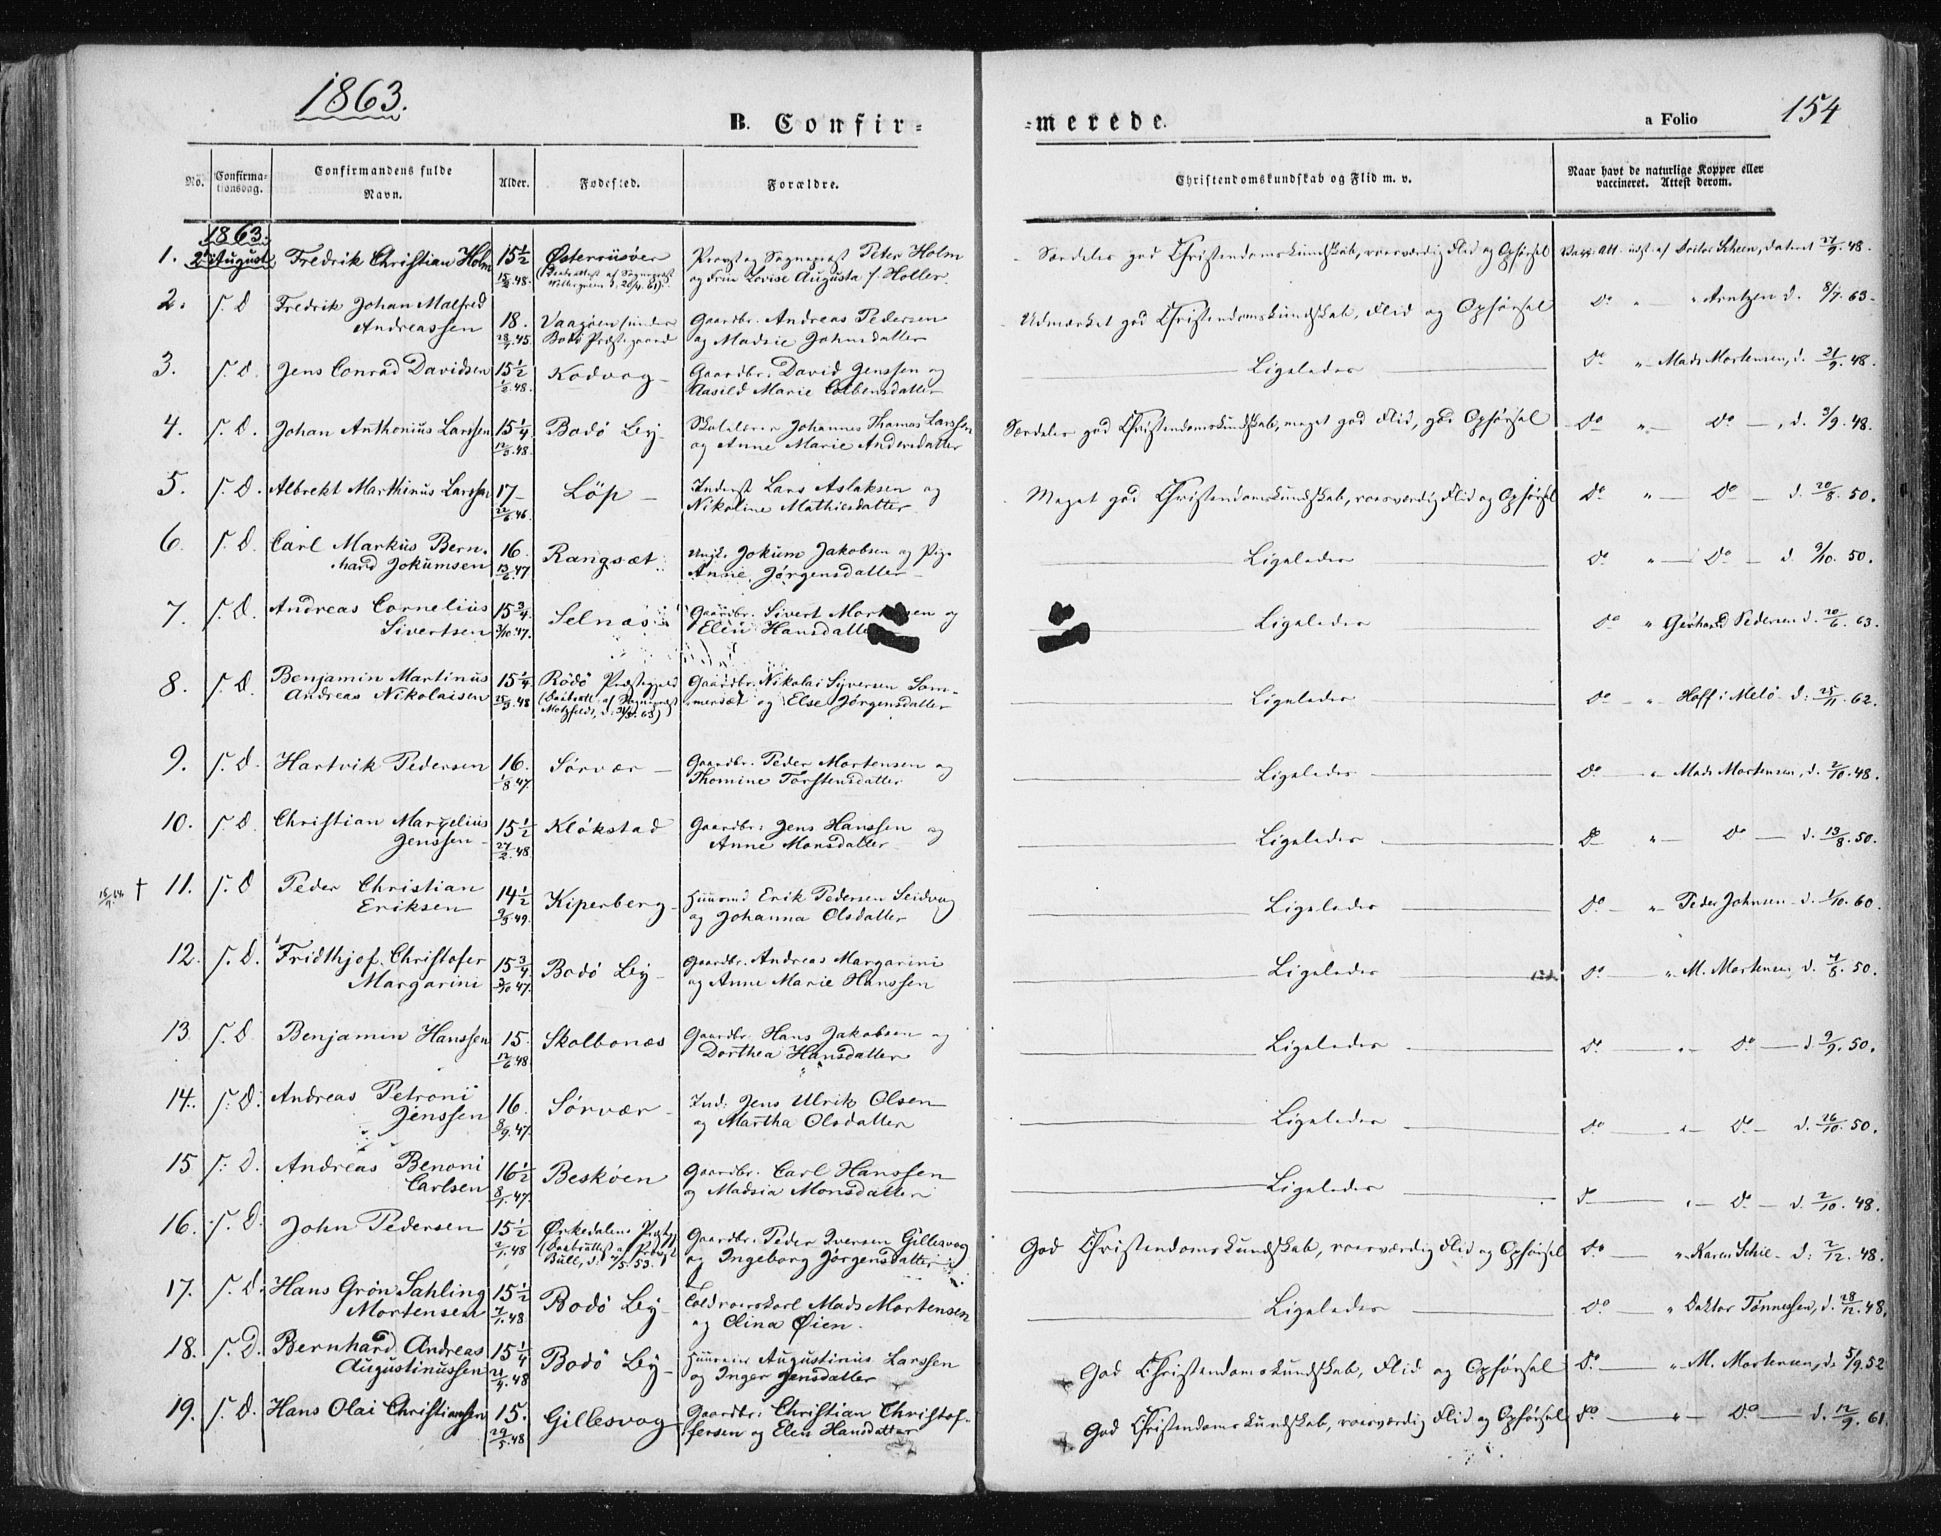 1863.
B. Confir=
=merede.
a Folio
154
No.
Confirma-
tionsdag.
Confirmandens fulde
Navn.
Alder.
Fødested.
Forældre.
Christendomskundskab og Flid m. v.
Naar havt de naturlige Kopper eller
vaccineret. Attest derom.
1863.
1. 2 August Fredrik Christian Holm 15½ Østerriisöer Provst og Sognepræst Peter Holm
15/2 48. og Fru Lovise Augusta f. Holler.
Særdeles god Christendomskundskab, roesværdig Flid og Opførsel Vacc. Att. udst. af Doctor Scheen, dateret 27/9 48.
2. s. D. Fredrik Johan Malfred
Andreassen 18. 28/7.45. Vaagøen (under
Bodö Præstegaard Gaardbr. Andreas Pedersen
og Madsie Johnsdatter
Udmærket god Christendomskundskab, Flid og Opførsel Do " Arntzen d. 8/7. 63.
3. s. D. Jens Conrad Davidsen 15½ 1/2.48. Kodvog Gaardbr. David Jenssen og
Aasild Marie Colbensdatter
Ligeledes Do " Mads Mortensen, d. 21/9. 48.
4. s. D. Johan Anthonius Larssen 15¼ 12/3.48. Bodö By Skolelærer Johannes Thomas Larssen
og Anne Marie Andersdatter
Særdeles god Christendomskundskab, meget god Flid, god Opførsel Do " Do, d. 3/9. 48.
5. s. D. Albrekt Marthinus Larssen 17 22/6.46 Löp Inderst Lars Aslaksen og
Nikoline Mathiesdatter
Meget god Christendomskundskab, roesværdig Flid og Opførsel Do " Do d. 20/8. 50.
6. s. D. Carl Markus Bern-
hard Jokumsen 16 13/6.47 Rangsæt Ungk. Jokum Jakobsen og Pige
Anne Jørgensdatter
Ligeledes Do " Do d. 9/10. 50.
7. s. D. Andreas Cornelius
Sivertsen 15¾ 3/10.47. Selnæs Gaardbr. Sivert Mortensen og
Elen Hansdatter
Ligeledes Do " Gerhard Pedersen d. 20/6. 63.
8. s. D. Benjamin Martinus
Andreas Nikolaisen 15¼ 25/3.48 Rödö Præstegjeld Gaardbr. Nikolai Syversen Som-
mersæt og Else Jørgensdatter
Ligeledes Do " Hoff i Melö d: 25/11. 62.
9. s. D. Hartvik Pedersen 16. 1/8 47. Sörvær Gaardbr. Peder Mortensen og
Thomine Torstensdatter
Ligeledes Do " Mads Mortensen, d. 2/10. 48.
10. s. D. Christian Margelius
Jenssen 15½ 27/2.48 Klökstad Gaardbr: Jens Hanssen og
Anne Monsdatter
Ligeledes Do " Do d. 13/8. 50.
† 11. s. D Peder Christian
Eriksen 14½ 2/3.49. Kiperberg Huusmd Erik Pedersen Seidvog
og Johanna Olsdatter
Ligeledes Do " Peder Johnsen d. 1/10. 60.
12. s. D. Fridthjof Christofer
Margarini 15¾ 3/10 47. Bodö By Gaardbr. Andreas Margarini
og Anne Marie Hanssen
Ligeledes Do " M. Mortensen, d. 7/8. 50.
13 s. D Benjamin Hanssen 15. 12/6 48 Skolbonæs Gaardbr. Hans Jakobsen og
Dorthea Hansdatter
Ligeledes Do " Do d 9/9. 50.
14. s. D. Andreas Petroni
Jenssen 16. 8/9.47. Sörvær Ind. Jens Ulrik Olsen
og Martha Olsdatter
Ligeledes Do " Do d. 26/10. 50.
15 s. D. Andreas Benoni
Carlsen 16½ 8/1.47. Beskøen Gaardbr. Carl Hanssen
og Madsia Monsdatter
Ligeledes Do " Do d. 2/10. 48.
16. s. D. John Pedersen 15½ 2/1.48 Ørkedalens Præstegj
(Daabsattest af Provst
Bull, d. 4/5. 53.) Gaardbr: Peder Iversen Gillesvog
og Ingeborg Jørgensdatter
God Christendomskundskab, roesværdig Flid og Opførsel Do " Karen Schie d: 2/12. 48.
17. s. D. Hans Grön Sahling
Mortensen 15½ 7/1.48 Bodö By Toldroerskarl Mads Mortensen
og Olina Øien.
Ligeledes Do " Doktor Tönnessen, d. 28/12. 48.
18. s. D. Bernhard Andreas
Augustinussen 15¼ 21/4.48 Bodö By Huuseier Augustinus Larssen
og Inger Jensdatter
God Christendomskundskab, Flid og Opførsel Do " M. Mortensen, d. 5/9. 52
19. s. D. Hans Olai Christianssen 15. 29/5.48 Gillesvog Gaardbr: Christian Christof-
fersen og Elen Hansdatter
God Christendomskundskab, roesværdig Flid og Opførsel Do " Do d. 12/9. 61.